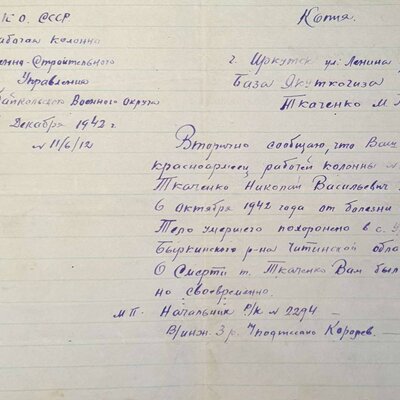 К.О. СССР
Копия.
рабочая колонна
енно-Строительного
Управления
байкальского Военного Округа
Декабря 1942 г.
№ 11/6/12
г. Иркутск ул. Ленина
База Якуткогиза
Ткаченко М.
Вторично сообщаю, что Ваш
красноармеец рабочей колонны
Ткаченко Николай Васильевич
6 октября 1942 года от болезни
Тело умершего похоронено в с. У
Быркинского р-на Читинской обла
О Смерти т. Ткаченко Вам был
но своевременно.
МП. Начальник Р/К № 2294 —
В/инж. 3 р. Подписано Коро